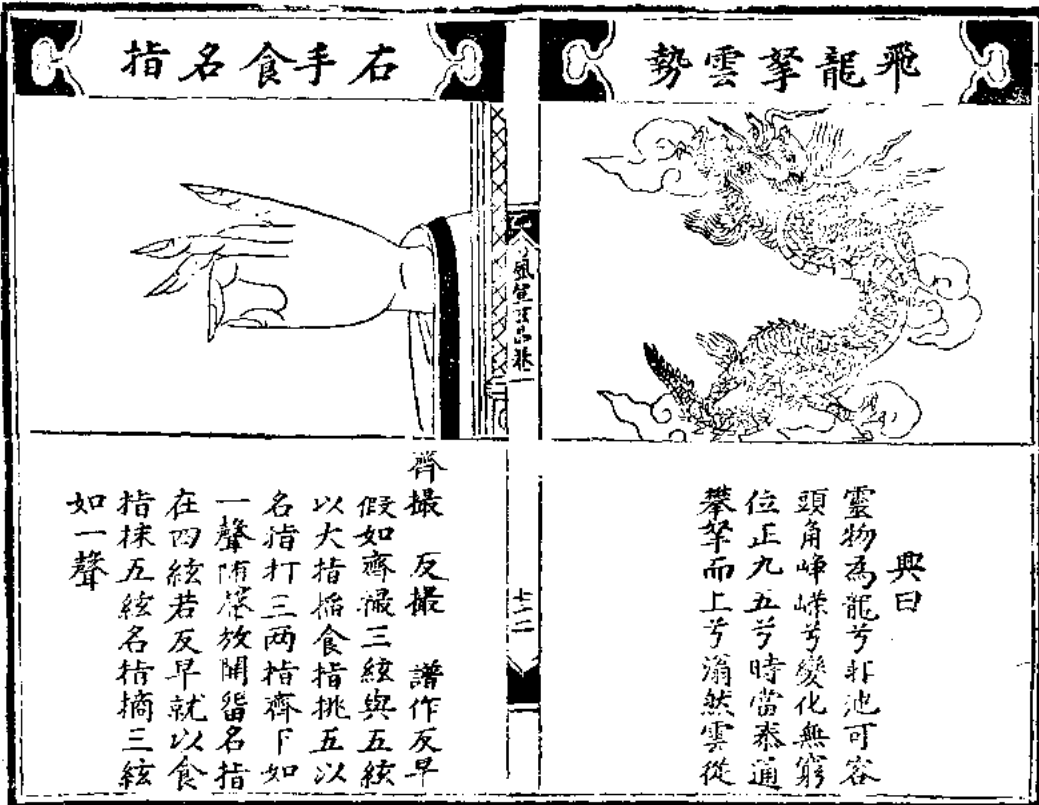 飛龍拏雲勢
興曰
靈物為龍兮非池可容
頭角崢嶸兮變化無窮
位正九五兮時當泰通
攀拏而上兮滃然雲從
風宣玄品卷一
七十二
右手食名指
齊撮 反撮 譜作反早
假如齊撮三絃與五絃
以大指搯食指挑五以
名指打三两指齊下如
一聲隨從放開留名指
在四絃若反早就以食
指抹五絃名指摘三絃
如一聲